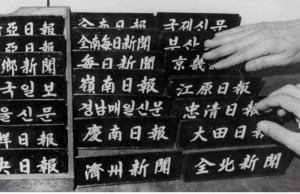 亞日報
亞日報
鄕新聞
국일보
울신문
鮮日報
央日報
全南日報
全南每日新聞
每日新聞
嶺南日報
경남매일신문
慶南日報
濟州新聞
국제신문
부산
京畿
江原日報
忠淸日報
大田日報
全北新聞